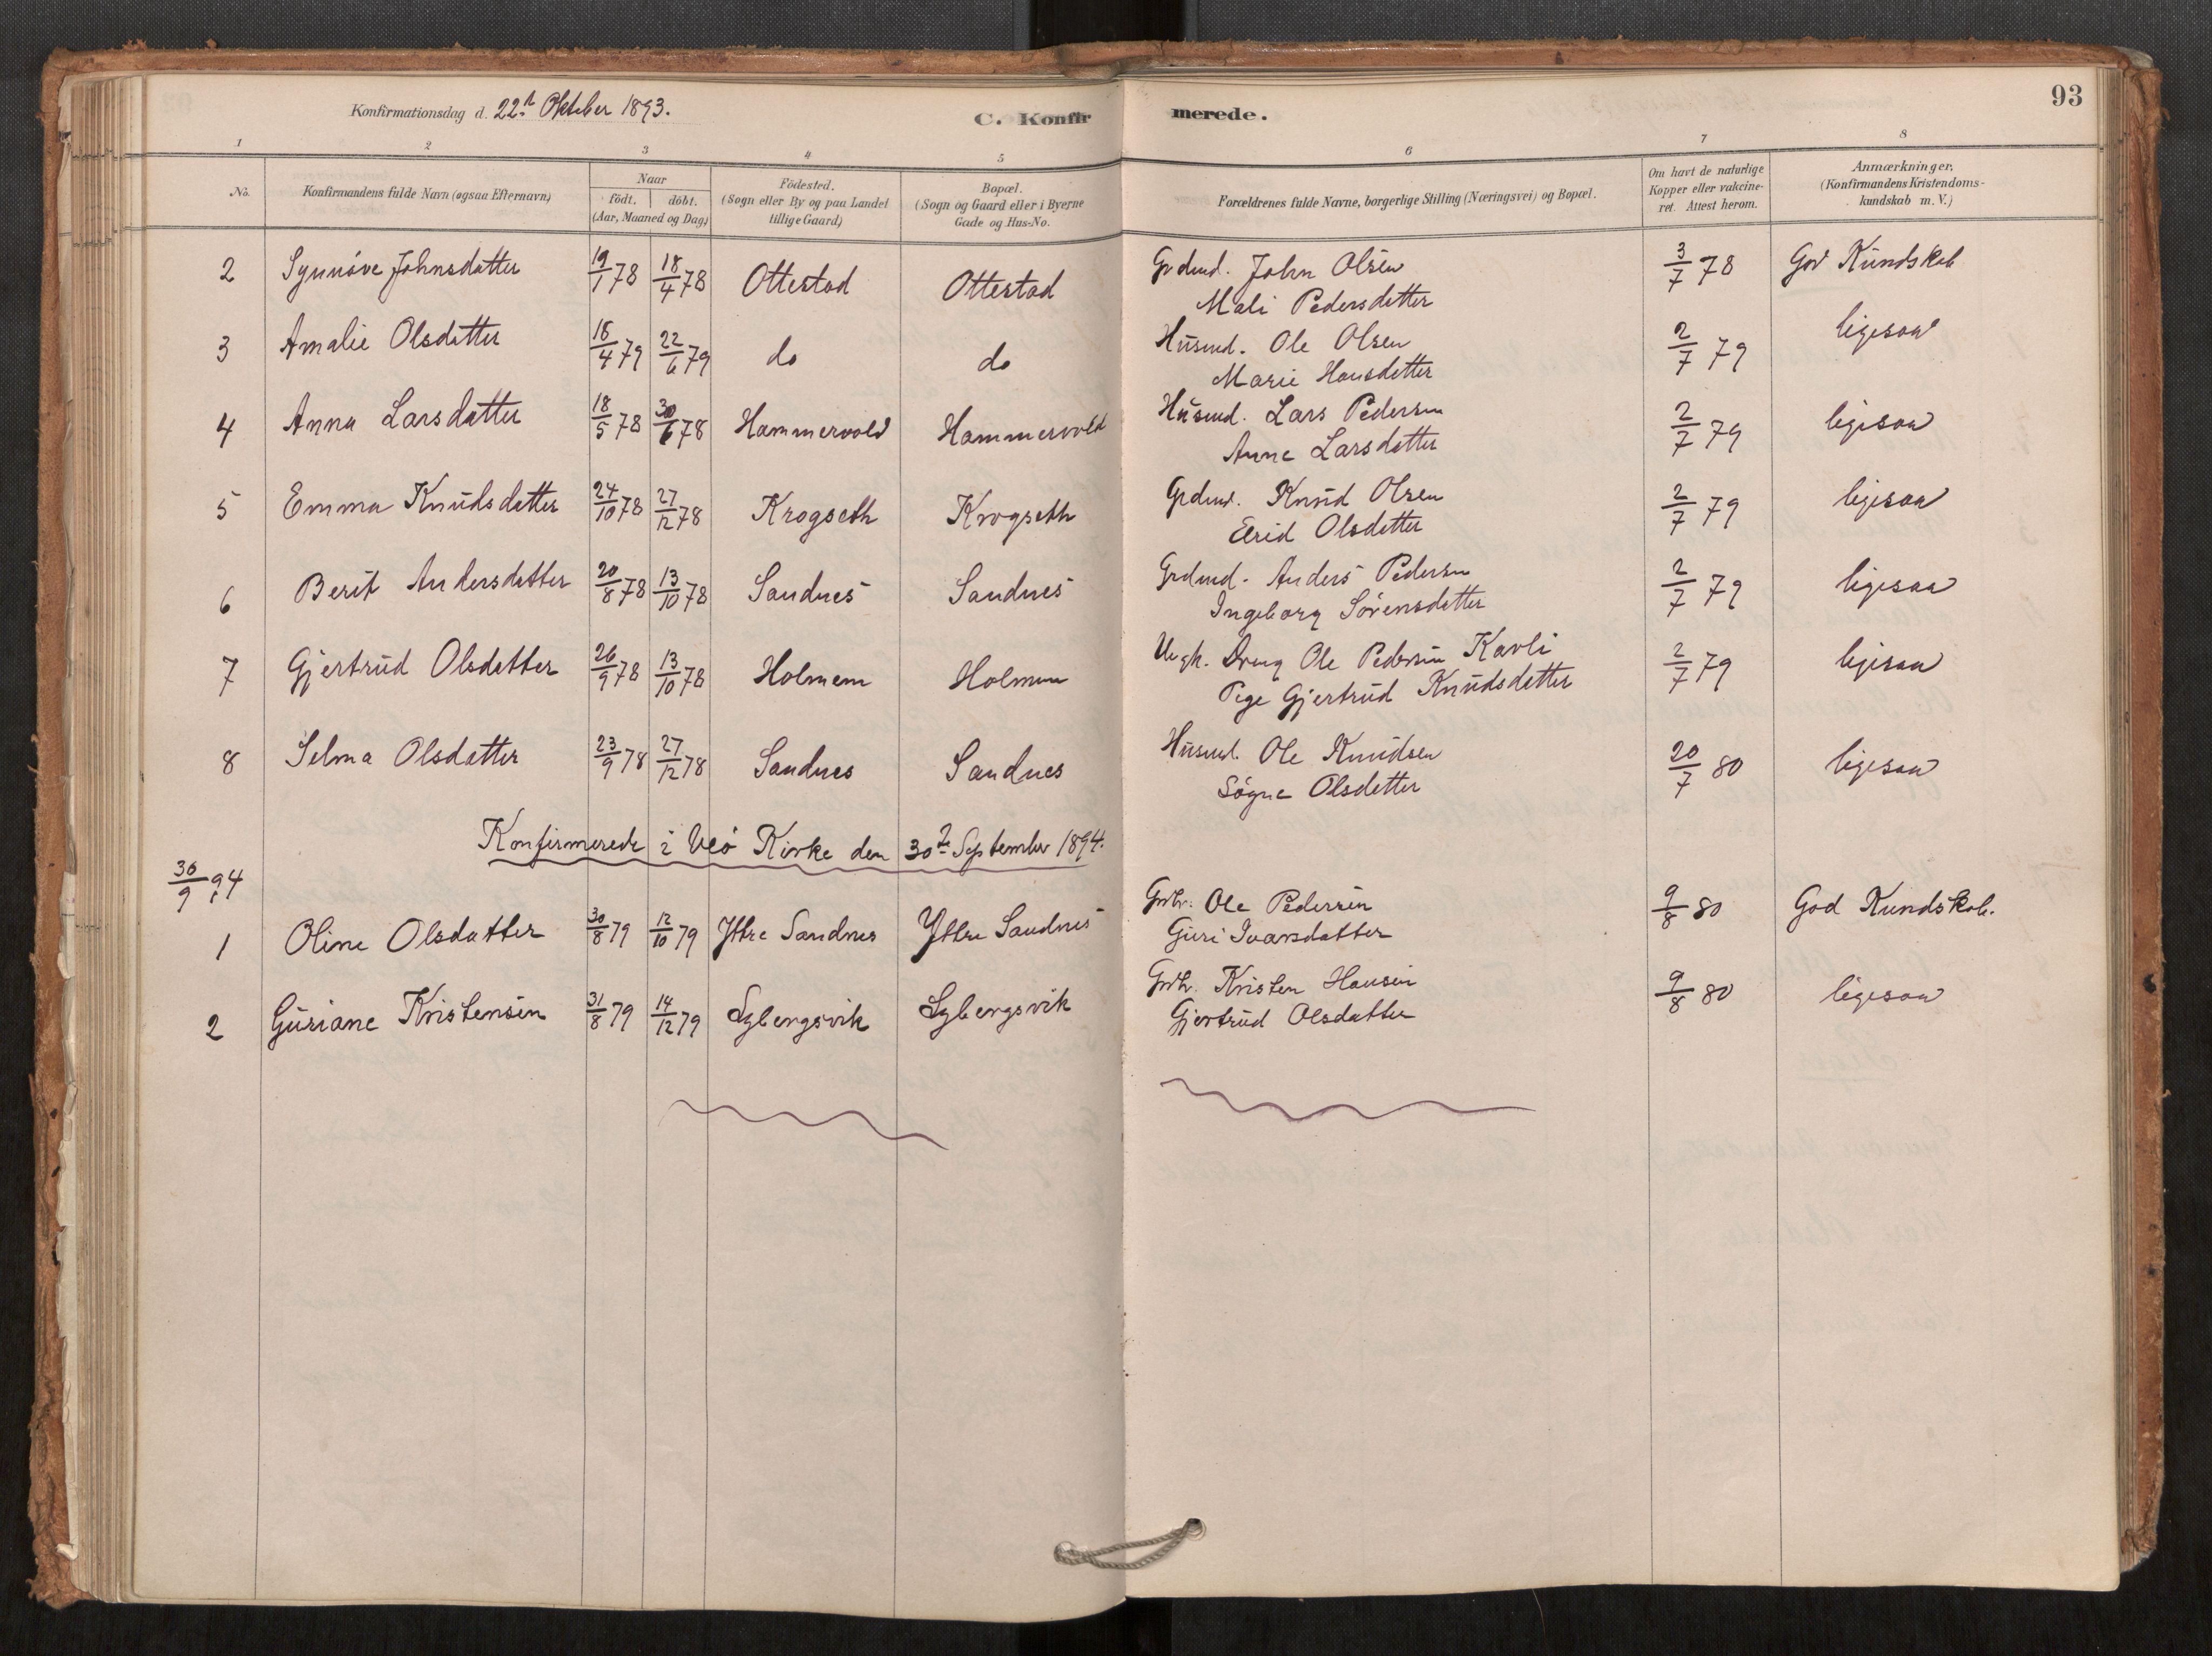 Konfirmationsdag d. 22. Oktober 1893.
C. Konfirmerede.
93
1 2 3 4 5 6 7 8
No.
Konfirmandens fulde Navn (ogsaa Efternavn)
Naar
födt. döbt.
(Aar, Maaned og Dag)
Födested.
(Sogn eller By og paa Landet
tillige Gaard)
Bopæl.
(Sogn og Gaard eller i Byerne
Gade og Hus-No.
Forældrenes fulde Navne, borgerlige Stilling (Næringsvei) og Bopæl.
Om havt de naturlige
Kopper eller vakcine-
ret. Attest herom.
Anmærkninger,
(Konfirmandens Kristendoms-
kundskab m. V.)
2 Synnöve Johnsdatter 19/1 78 18/4 78 Ottestad Ottestad Grdmd. John Olsen 3/7 78 God Kundskab
Mali Pedersdatter
3 Amalie Olsdatter 18/4 79 22/6 79 do do Husmd. Ole Olsen 2/7 79 ligesaa
Marie Hansdatter
4 Anna Larsdatter 18/5 78 30/6 78 Hammervold Hammervold Husmd. Lars Pedersen 2/7 79 ligesaa
Anne Larsdatter
5 Emma Knudsdatter 24/10 78 27/12 78 Krogseth Krogseth Grdmd. Knud Olsen 2/7 79 ligesaa
Olsdatter
6 Berit Andersdatter 20/8 78 13/10 78 Sandnes Sandnes Grdmd. Anders Pedersen 2/7 79 ligesaa
Ingeborg Sörensdatter
7 Gjertrud Olsdatter 26/9 78 13/10 78 Holmem Holmem Ungk. Dreng Ole Pedersen Kavli 2/7 79 ligesaa
Pige Gjertrud Knudsdatter
8 Selma Olsdatter 23/9 78 27/12 78 Sandnes Sandnes Husmd. Ole Knudsen 20/7 80 ligesaa
Sögne Olsdatter
Konfirmerede i Veö Kirke den 30te September 1894.
30/9 94
1 Oline Olsdatter 30/8 79 12/10 79 Yttre Sandnes Yttre Sandnes Grbr. Ole Pedersen 9/8 80 God Kundskab.
Guri Ivarsdatter
2 Guriane Kristensen 31/8 79 14/12 79 Lybergsvik Lybergsvik Grbr. Kristen Hansen 9/8 80 ligesaa
Gjertrud Olsdatter